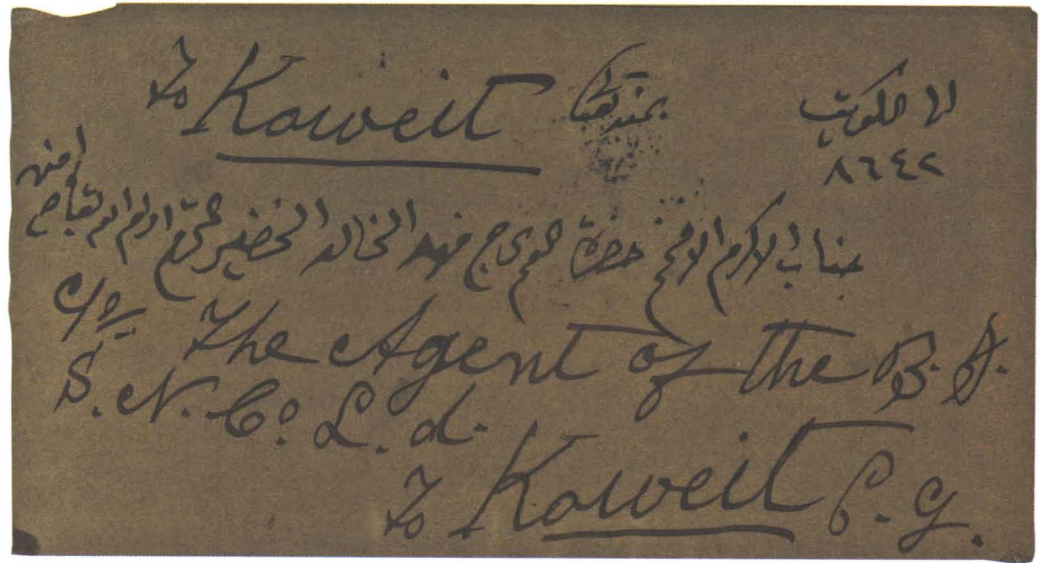 To Koweit بمنه تعالى الا الكويت
٨٦٤٢
جناب الاكرم الافخم حضرة العم حاج فهد الخالد الخضير المحترم ادام الله بقاه امين
C/o The Agent of the B. I.
S. N. Co. L. d.
To Koweit P. G.